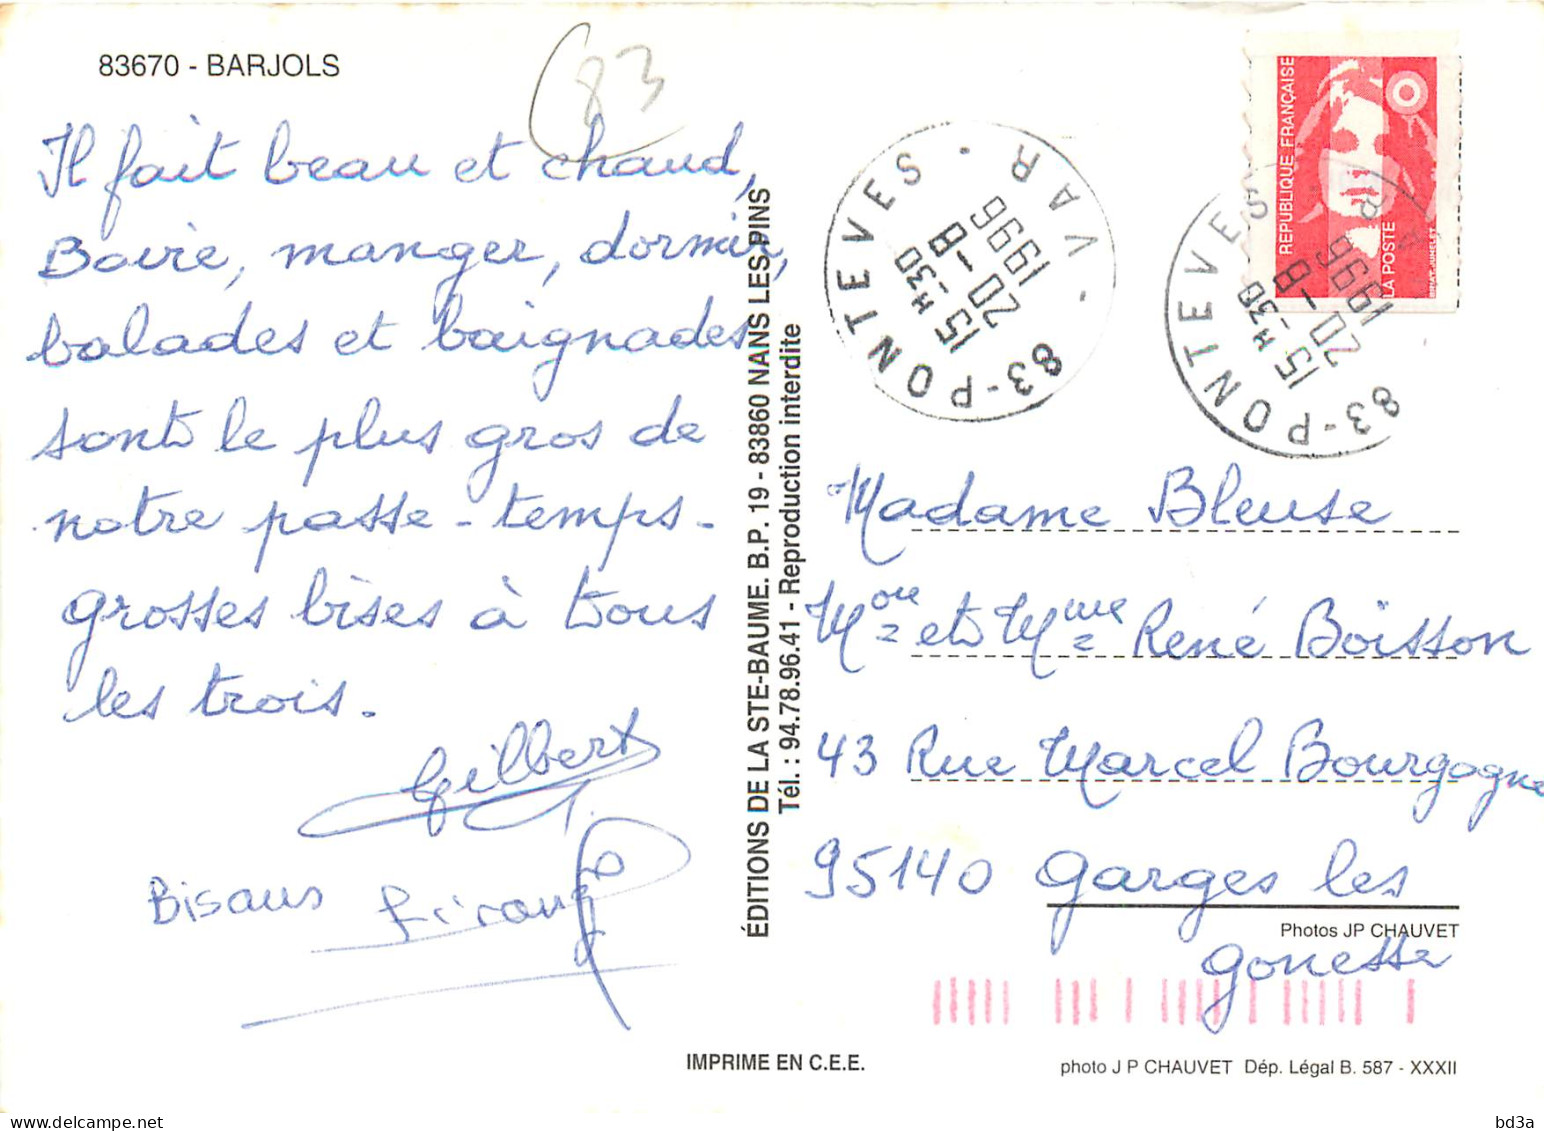 83670 - BARJOLS
83
Il fait beau et chaud,
Boire, manger, dormir,
balades et baignades
sont le plus gros de
notre passe-temps.
Grosses bises à tous
les trois.
Gilbert
Bisous
ÉDITIONS DE LA STE-BAUME. B.P. 19 - 83860 NANS LES PINS
Tél. : 94.78.96.41 - Reproduction interdite
83-PONTEVES - VAR -
15 H 30
20 - 8
1996
83-PONTEVES
15 H 30
20 - 8
1996
REPUBLIQUE FRANÇAISE
LA POSTE
BRIAT-JUMELET
Madame Bleuse
Mon et Mme René Boisson
43 Rue Marcel Bourgogne
95140 Garges les
Gonesse
Photos JP CHAUVET
IMPRIME EN C.E.E.
photo J P CHAUVET Dép. Légal B. 587 - XXXII
www.delcampe.net
bd3a